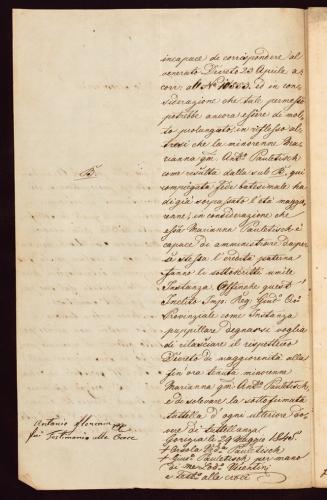 incapace di corrispondere al
venerato Decreto 23 Aprile a:
corr: all. N.° 10533. ed in con:
siderazione che tale permesso
potrebbe ancora essere di mol:
to prolungato, in riflesso al:
tresì che la minorenne Ma:
rianna qm. Ant.° Pauletisch
come risulta dalla sub B. qui
compiegata fede batesimale ha
digià sorpassato l'età maggo:
renne, in considerazione che
essa Marianna Pauletisch è
capace di amministrare da per
se stessa l'eredità paterna
fanno li sottoscritti umile
Instanza. Affinche quest'
Inclito Imp: Reg: Giud.° Civ.°
Provinciale come Instanza
puppillare degnarsi voglia
di rilasciare il rispettivo
Decreto di maggiorenità alla
fin'ora tenuta minorenne
Marianna qm. Ant.° Pauletisch,
e di solevare la sottofirmata
tuttella d'ogni ulteriore do:
vere di tuttellanza
Gorizia li 29 Maggio 1845.
+ Orsola Ved.ª Pauletisch
+ Gius.e Pauletisch per mano
di me Vicentini
e Test.° alla croci
B.
Antonio
fui Testimonio alle Croce